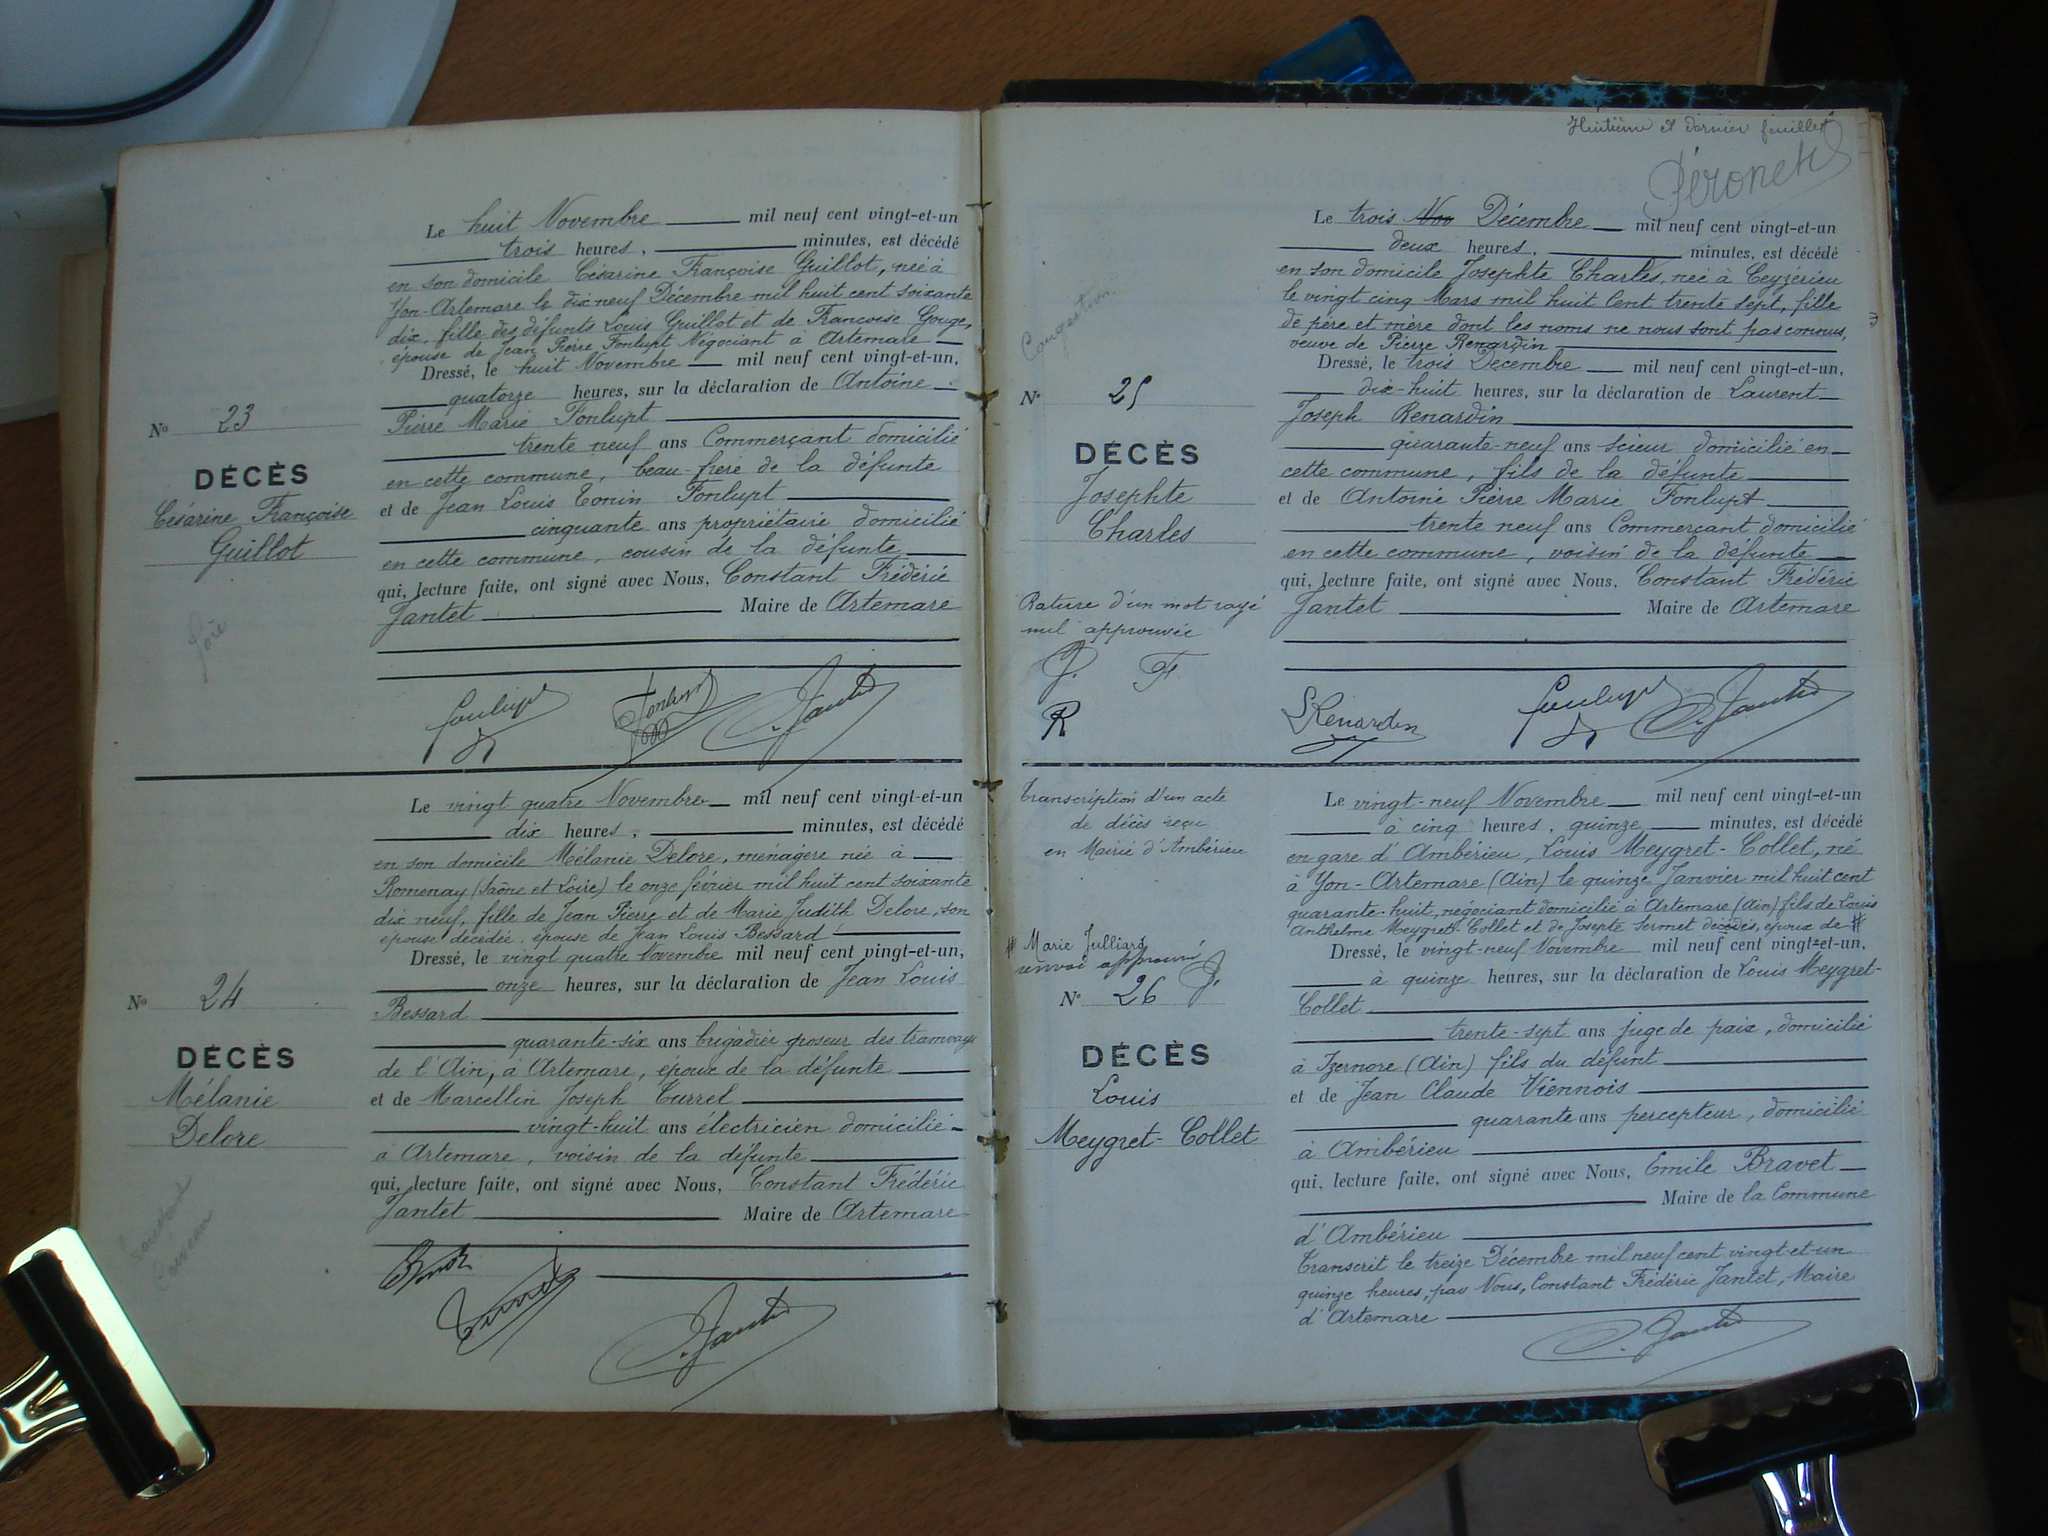 Le huit Novembre mil neuf cent vingt-et-un
trois heures, minutes, est décédé
en son domicile Césarine Françoise Guillot, née à
Yon-Artemare le dix neuf Décembre mil huit cent soixante
dix, fille des défunts Louis Guillot et de Françoise Gouge,
épouse de Jean Pierre Fonlupt Négociant à Artemare
Dressé, le huit Novembre mil neuf cent vingt-et-un,
quatorze heures, sur la déclaration de Antoine
Pierre Marie Fonlupt
trente neuf ans Commerçant domicilié
en cette commune, beau-frère de la défunte
et de Jean Louis Tonin Fonlupt
cinquante ans propriétaire domicilié
en cette commune, cousin de la défunte
qui, lecture faite, ont signé avec Nous, Constant Frédéric
Jantet Maire de Artemare
No 23
DÉCÈS
Césarine Françoise
Guillot
foie
Fonlupt Fonlupt C. Jantet
Le vingt quatre Novembre mil neuf cent vingt-et-un
dix heures, minutes, est décédé
en son domicile Mélanie Delore, ménagère née à
Romenay (Saône et Loire) le onze février mil huit cent soixante
dix neuf, fille de Jean Pierre et de Marie Judith Delore, son
épouse décédée, épouse de Jean Louis Bessard
Dressé, le vingt quatre Novembre mil neuf cent vingt-et-un,
onze heures, sur la déclaration de Jean Louis
Bessard
quarante-six ans brigadier poseur des tramways
de l'Ain, à Artemare, époux de la défunte
et de Marcellin Joseph Turrel
vingt-huit ans électricien domicilié
à Artemare, voisin de la défunte
qui, lecture faite, ont signé avec Nous, Constant Frédéric
Jantet Maire de Artemare
No 24
DÉCÈS
Mélanie
Delore
C. Jantet
Huitième et dernier feuillet
Péronet
Le trois Nov Décembre mil neuf cent vingt-et-un
deux heures, minutes, est décédé
en son domicile Josephte Charles, née à Ceyzérieu
le vingt cinq Mars mil huit Cent trente sept, fille
de père et mère dont les noms ne nous sont pas connus,
veuve de Pierre Renardin
Dressé, le trois Décembre mil neuf cent vingt-et-un,
dix-huit heures, sur la déclaration de Laurent
Joseph Renardin
quarante-neuf ans scieur domicilié en
cette commune, fils de la défunte
et de Antoine Pierre Marie Fonlupt
trente neuf ans Commerçant domicilié
en cette commune, voisin de la défunte
qui, lecture faite, ont signé avec Nous, Constant Frédéric
Jantet Maire de Artemare
Congestion
No 25
DÉCÈS
Josephte
Charles
Rature d'un mot rayé
nul approuvée
J. F.
R
LRenardin Fonlupt C. Jantet
Transcription d'un acte
de décès reçu
en Mairie d'Ambérieu
Le vingt-neuf Novembre mil neuf cent vingt-et-un
à cinq heures, quinze minutes, est décédé
en gare d'Ambérieu, Louis Meygret-Collet, né
à Yon-Artemare (Ain) le quinze Janvier mil huit cent
quarante-huit, négociant domicilié à Artemare (Ain) fils de Louis
Anthelme Meygret-Collet et de Josepte Sermet décédés, époux de #
Dressé, le vingt-neuf Novembre mil neuf cent vingt-et-un,
à quinze heures, sur la déclaration de Louis Meygret-
Collet
trente-sept ans juge de paix, domicilié
à Izernore (Ain) fils du défunt
et de Jean Claude Viennois
quarante ans percepteur, domicilié
à Ambérieu
qui, lecture faite, ont signé avec Nous, Emile Bravet
Maire de la Commune
d'Ambérieu
Transcrit le treize Décembre mil neuf cent vingt-et-un
quinze heures, par Nous, Constant Frédéric Jantet, Maire
d'Artemare
# Marie Julliard
renvoi approuvé J.
No 26
DÉCÈS
Louis
Meygret-Collet
C. Jantet